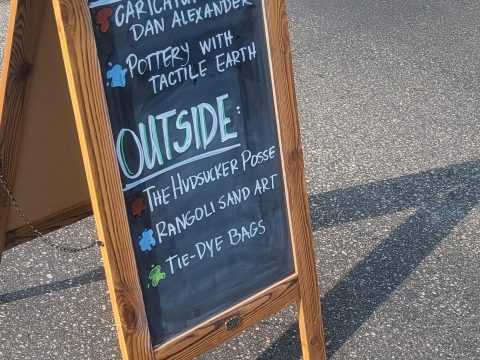 DAN ALEXANDER
POTTERY WITH
TACTILE EARTH
OUTSIDE:
THE HUDSUCKER POSSE
RANGOLI SAND ART
TIE-DYE BAGS